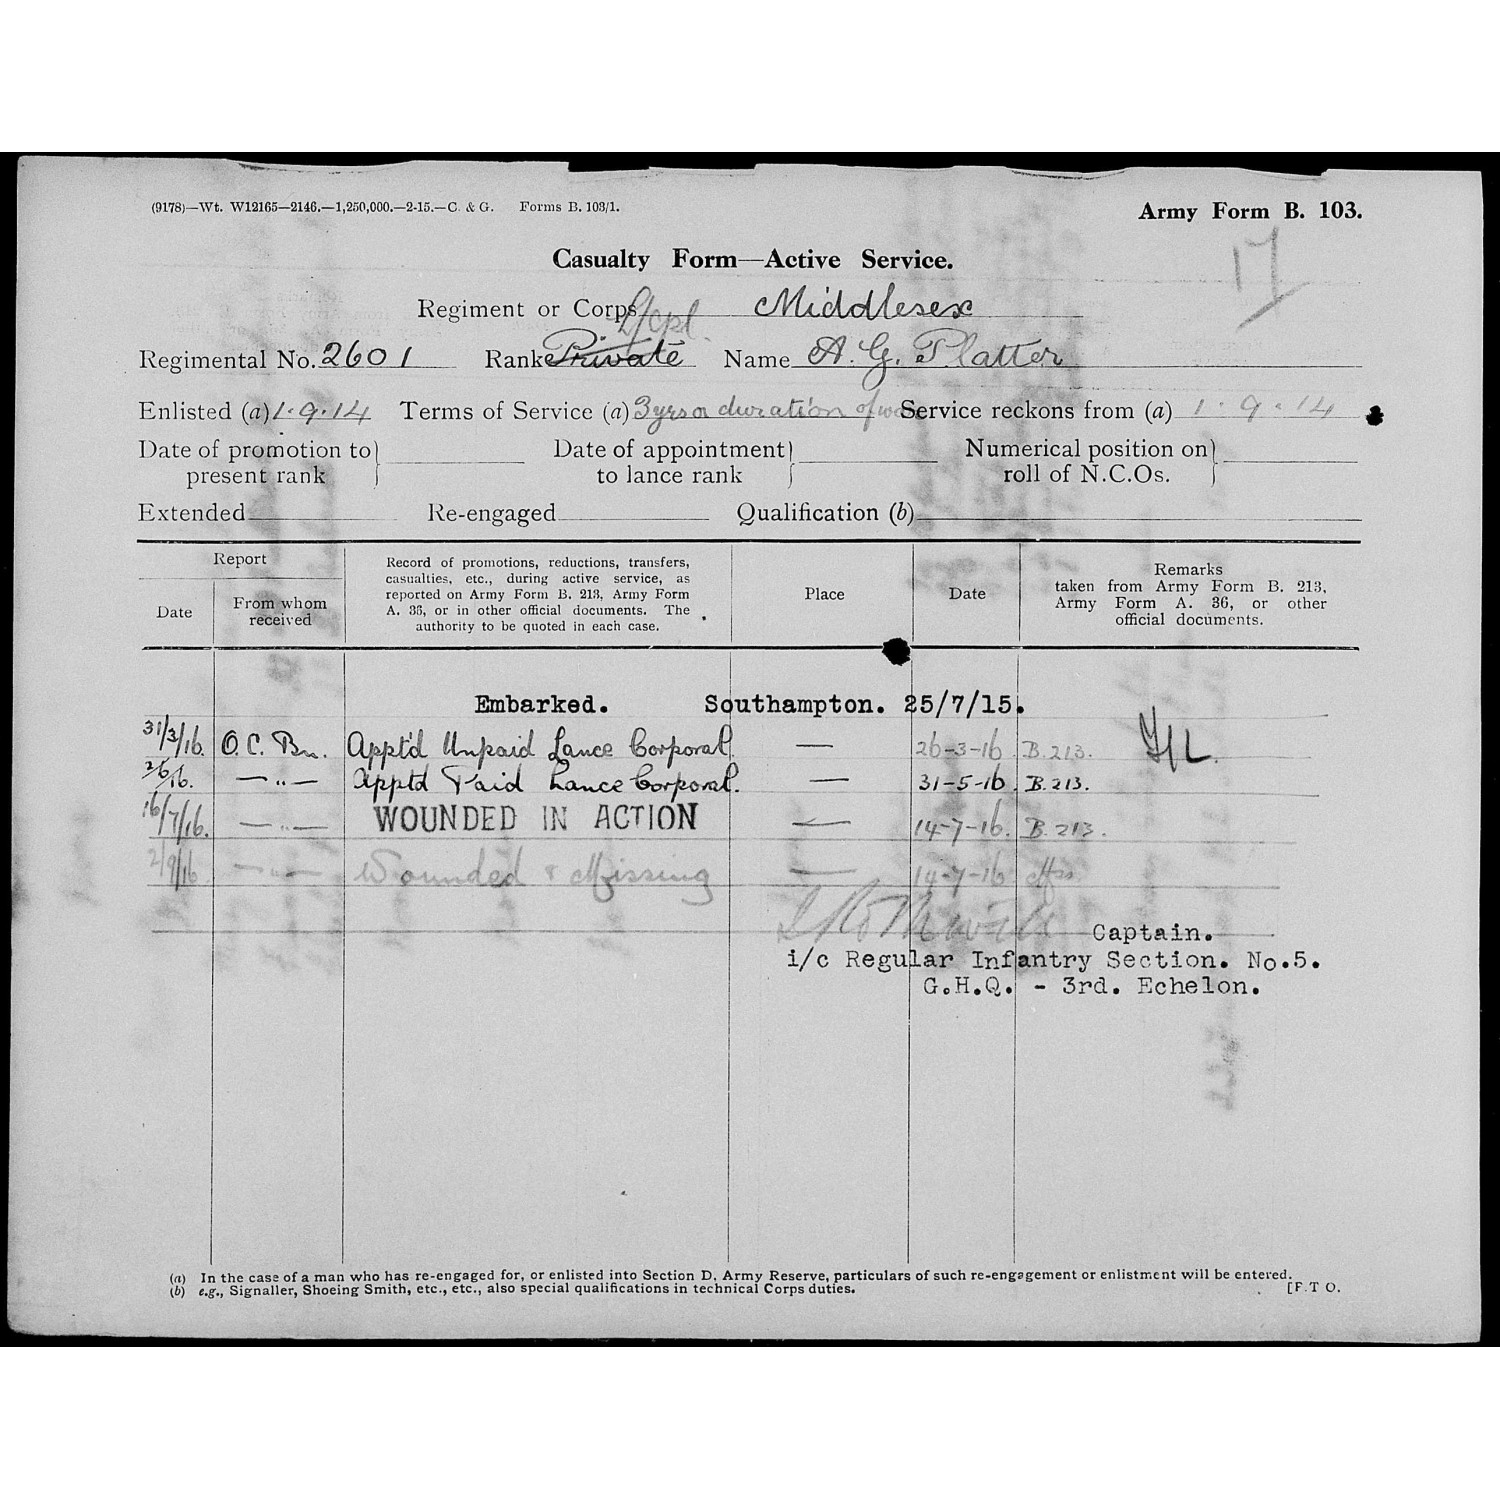 (9178)—Wt. W12165—2146.—1,250,000.—2-15.—C. & G. Forms B. 103/1.
Army Form B. 103.
17
Casualty Form—Active Service.
Regiment or Corps Middlesex
L/Cpl.
Regimental No. 2601 Rank Private Name A. G. Platter
Enlisted (a) 1.9.14 Terms of Service (a) 3 yrs or duration of war Service reckons from (a) 1.9.14
Date of promotion to present rank Date of appointment to lance rank Numerical position on roll of N.C.Os.
Extended Re-engaged Qualification (b)
Report
Date
From whom received
Record of promotions, reductions, transfers,
casualties, etc., during active service, as
reported on Army Form B. 213, Army Form
A. 36, or in other official documents. The
authority to be quoted in each case.
Place
Date
Remarks
taken from Army Form B. 213,
Army Form A. 36, or other
official documents.
Embarked. Southampton. 25/7/15.
31/3/16. O.C. Bn. Appt'd Unpaid Lance Corporal. — 26-3-16 B.213.
2/6/16. — " — Apptd Paid Lance Corporal. — 31-5-16. B.213.
16/7/16. — " — WOUNDED IN ACTION — 14-7-16. B.213.
2/9/16 — " — Wounded & Missing — 14-7-16
Captain.
i/c Regular Infantry Section. No.5.
G.H.Q. - 3rd. Echelon.
(a) In the case of a man who has re-engaged for, or enlisted into Section D, Army Reserve, particulars of such re-engagement or enlistment will be entered.
(b) e.g., Signaller, Shoeing Smith, etc., etc., also special qualifications in technical Corps duties. [P.T O.